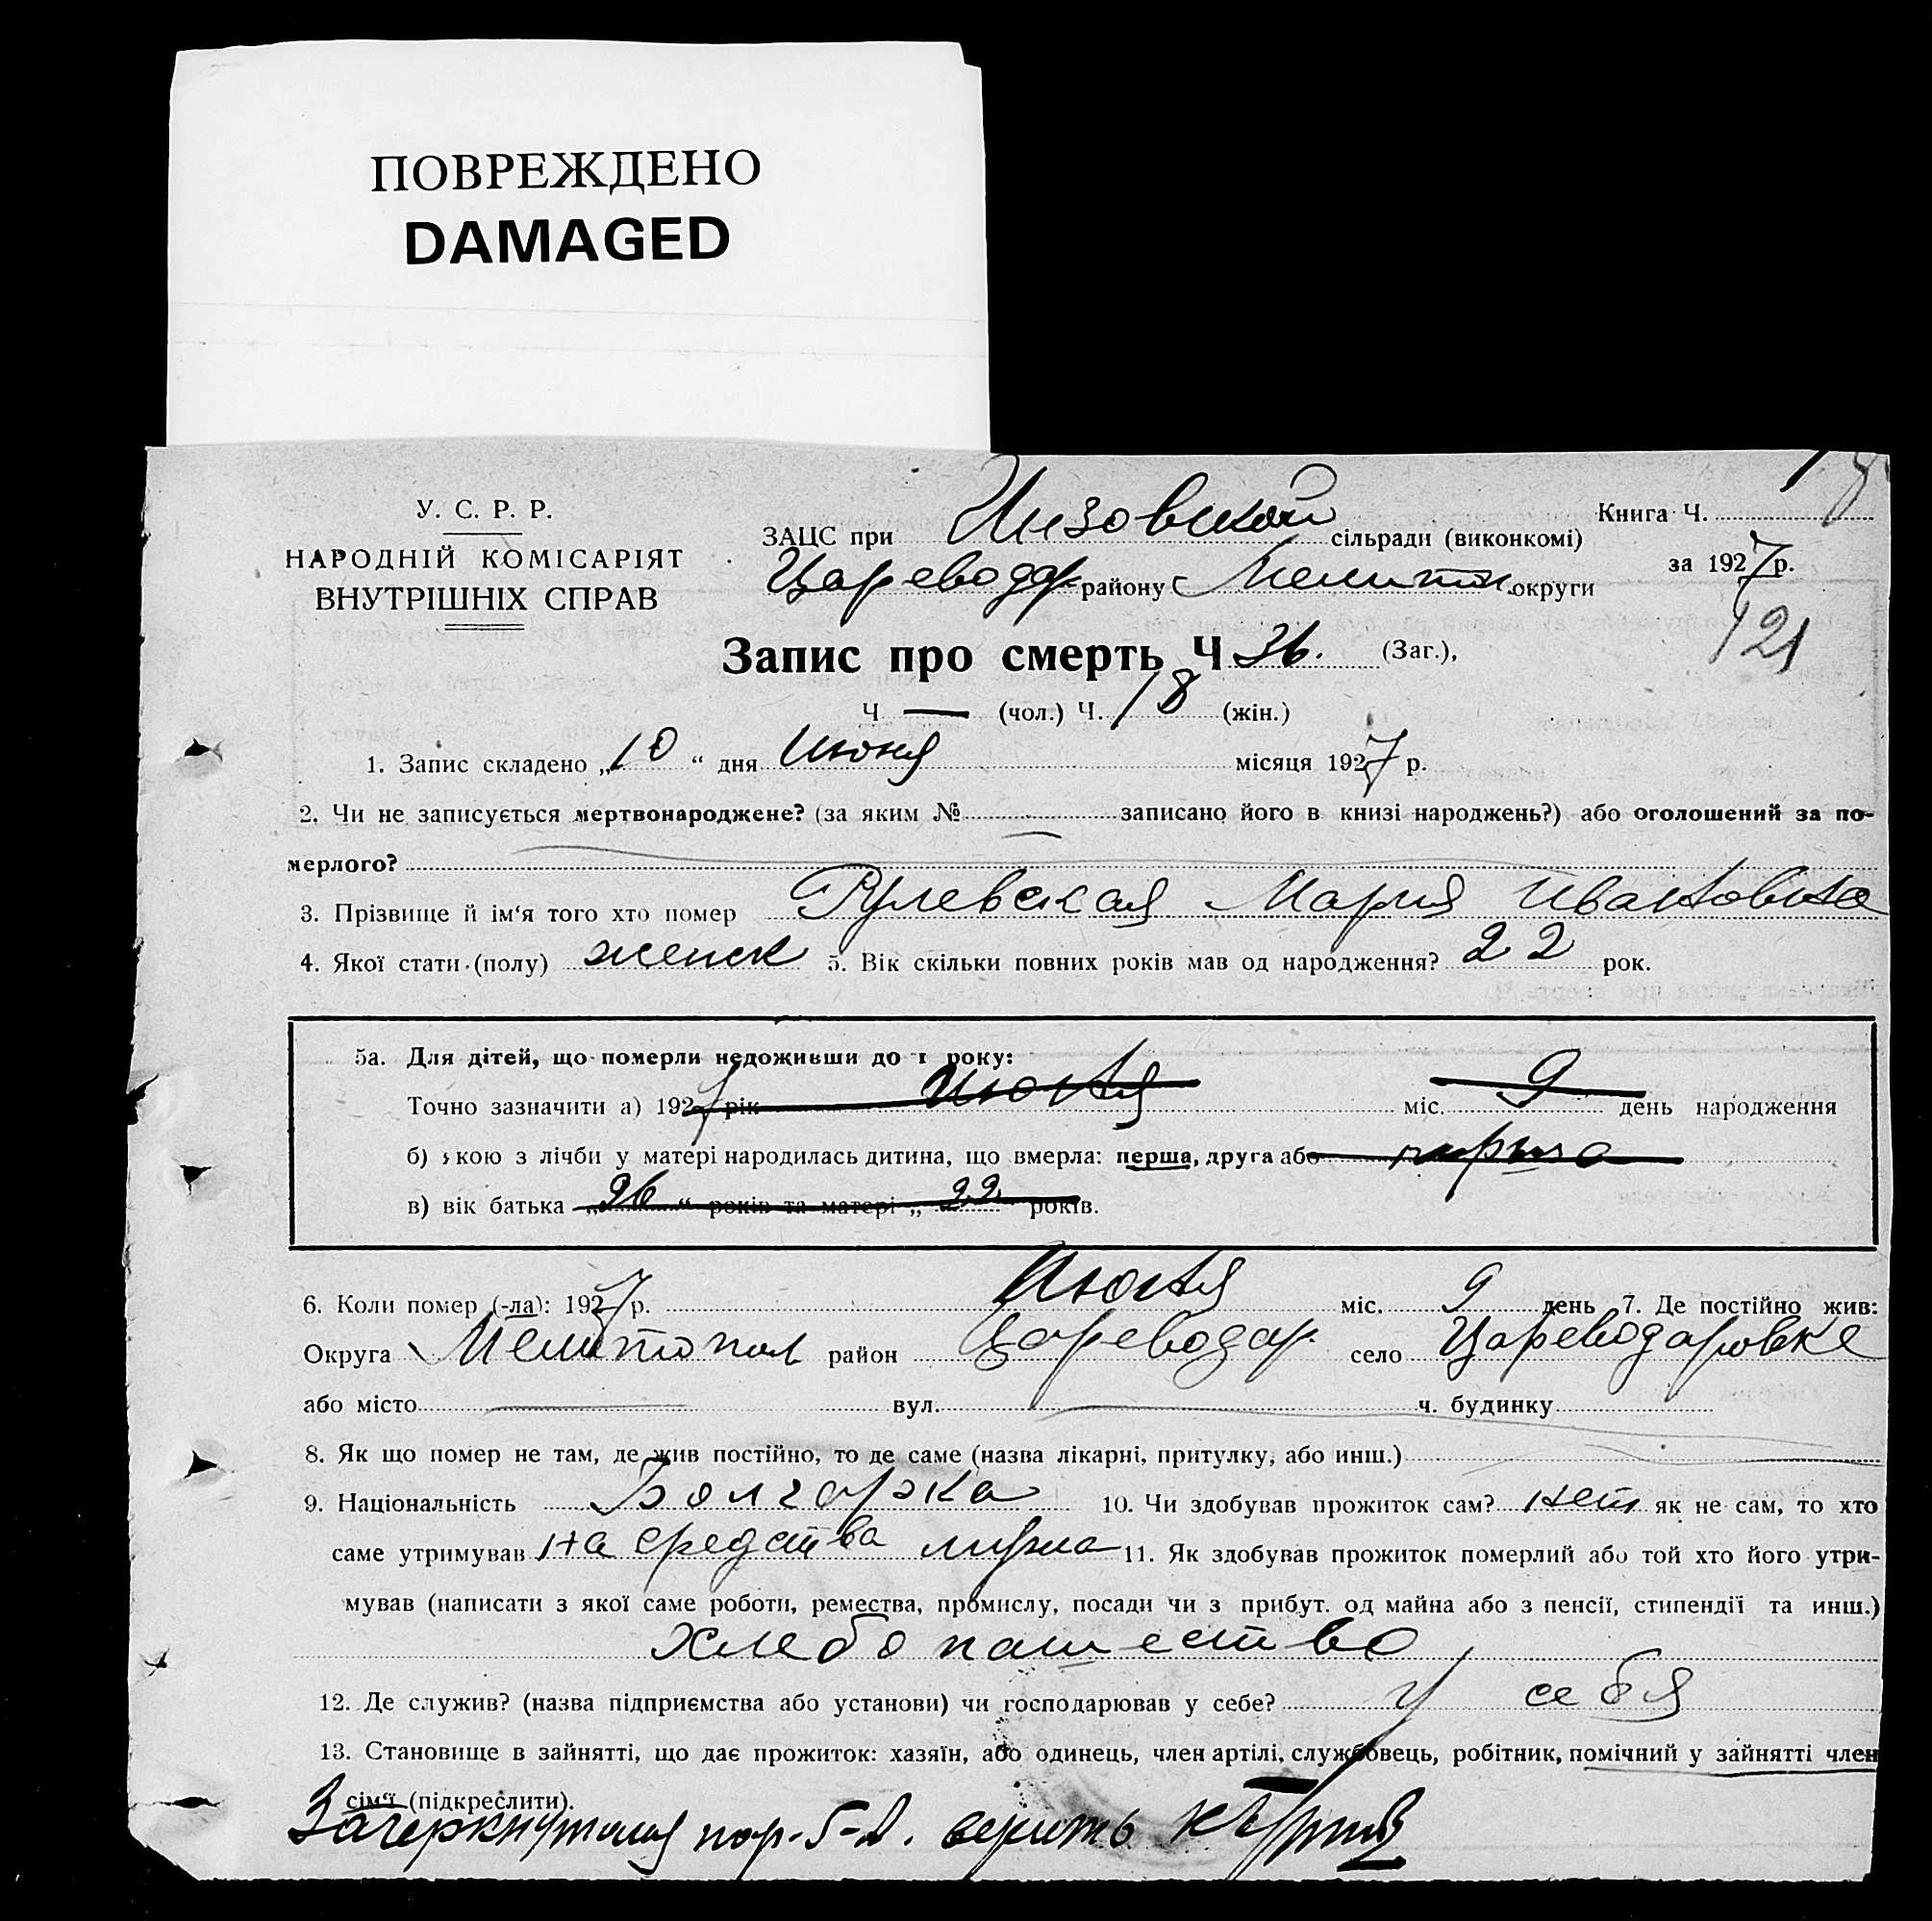 ПОВРЕЖДЕНО
DAMAGED
У. С. Р. Р.
НАРОДНІЙ КОМІСАРІЯТ
ВНУТРІШНІХ СПРАВ
ЗАЦС при Низовской сільради (виконкомі)
Цареводар району Мелитоп. округи
Книга Ч.
за 1927 р.
121
Запис про смерть Ч 36. (Заг.),
Ч — (чол.) Ч. 18 (жін.)
1. Запис складено „10“ дня Июня місяця 1927 р.
2. Чи не записується мертвонароджене? (за яким № записано його в книзі народжень?) або оголошений за по-
мерлого?
3. Прізвище й ім‘я того хто помер Рулевская Мария Ивановна
4. Якої стати (полу) женск 5. Вік скільки повних років мав од народження? 22 рок.
5а. Для дітей, що померли недоживши до 1 року:
Точно зазначити а) 1927 рік Июня міс. 9 день народження
б) якою з лічби у матері народилась дитина, що вмерла: перша, друга або перша
в) вік батька „26“ років та матері „22 років.
6. Коли помер (-ла): 1927 р. Июня міс. 9 день 7. Де постійно жив:
Округа Мелитопол район Цареводар. село Цареводаровке
або місто вул. ч. будинку
8. Як що помер не там, де жив постійно, то де саме (назва лікарні, притулку, або инш.)
9. Національність Болгарка 10. Чи здобував прожиток сам? нет як не сам, то хто
саме утримував на средства мужа 11. Як здобував прожиток померлий або той хто його утри-
мував (написати з якої саме роботи, ремества, промислу, посади чи з прибут. од майна або з пенсії, стипендії та инш.)
хлебопашество
12. Де служив? (назва підприємства або установи) чи господарював у себе? у себя
13. Становище в зайнятті, що дає прожиток: хазяїн, або одинець, член артілі, службовець, робітник, помічний у зайнятті член
сім‘ї (підкреслити).
Зачеркнутая пор. 5-а. верить